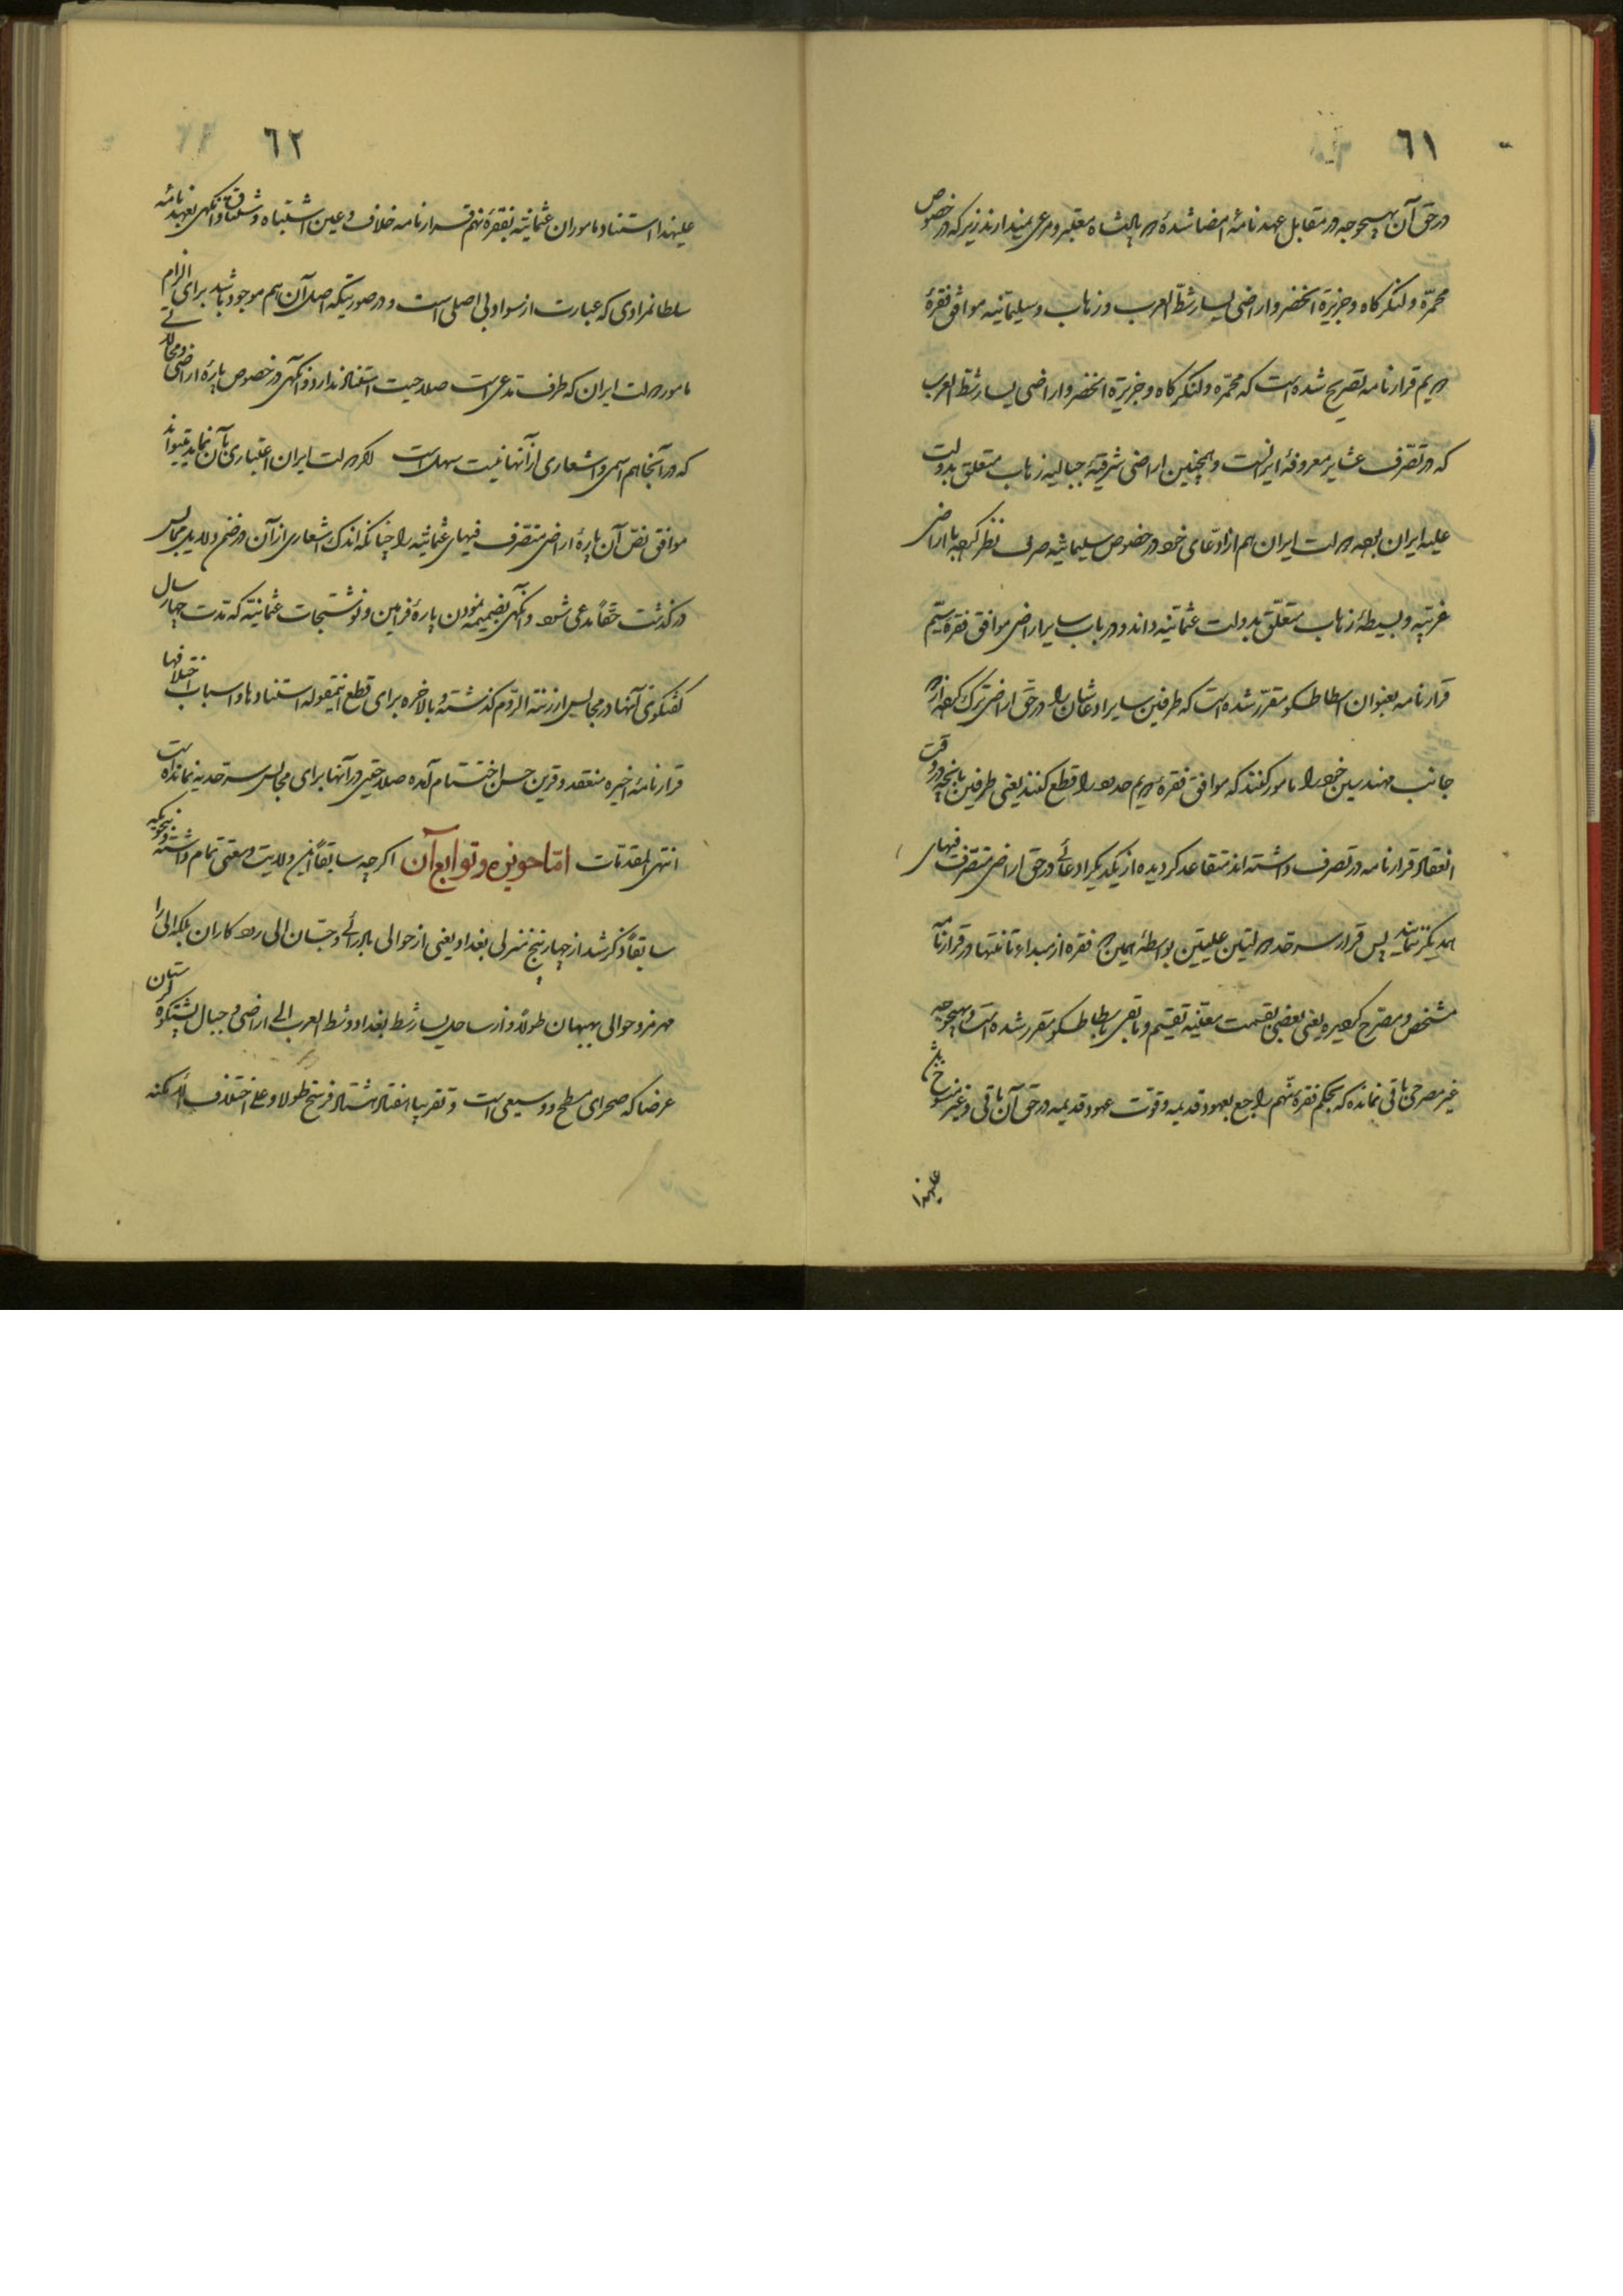 ٦١
در حق آن بهیچوجه در مقابل عهدنامهٔ امضا شدهٔ دو پادشاه معتبر و مرعی نمیدارند زیرکه در خصوص
محمّره و لنگرگاه و جزیرة الخضر و اراضی یسار شطّ العرب و زهاب و سلیمانیه موافق فقرهٔ
دویم قرارنامه تصریح شده است که محمّره و لنگرگاه و جزیرة الخضر و اراضی یسار شط العرب
که در تصّرف عشایر معروفهٔ ایرانست و همچنین اراضی شرقیّهٔ جبالیه زهاب متعلق بدولت
علیه ایران بوده دولت ایران هم از ادّعای خود در خصوص سلیمانیه صرف نظر کرده با اراضی
غربیّه و بسیطهٔ زهاب متعلّق بدولت عثمانیه داند و در باب سایر اراضی موافق فقرهٔ سیّم
قرارنامه بعنوان اسطاطسکو مقرّر شده است که طرفین سایر ادعاشان را در حق اراضی ترک کرده از دو
جانب مهندسین خود را مامور کنند که موافق فقرهٔ دویم حدود را قطع کنند یعنی طرفین بانچه در وقت
انعقاد قرارنامه در تصرف داشته‌اند متقاعد گردیده از یکدیگر ادعائی در حق اراضی متصّرف فیهای
همدیگر ننمایند پس قرار سرحد دولتین علیتین بواسطهٔ همین دو فقره از مبداء تا منتها در قرارنامه
مشخص و مصّرح گردیده یعنی بعضی بقسمت معیّنه تقسیم و باقی باسطاطسکو مقرر شده است و بهیچوجه
غیر مصرحی باقی نمانده که بحکم فقرهٔ نهّم راجع بعهود قدیمه و قوت عهود قدیمه در حق آن باقی و غیر منسوخ باشد
علیهذا
٦٢
علیهذا استناد ماموران عثمانیّه بفقرهٔ نهم قرارنامه خلاف و عین اشتباه و وانگهی بعهدنامه
سلطانمرادی که عبارت از سواد بی اصلی است و در صورتیکه اصل آن هم موجود باشد برای الزام
مامور دولت ایران که طرف مدعی است صلاحیت استناد ندارد وانگهی در خصوص پارهٔ اراضی و محالاتی
که در آنجا هم اسمی و اشعاری از آنها نیست سهل است اگر دولت ایران اعتباری بآن نماید میتواند
موافق نصّ آن پارهٔ اراضی متصّرف فیهای عثمانیه را چنانکه اندک اشعاری از آن در ضمن مجالس
درگذشت حقّاً مدعی شود وانگهی بضمیمه نمودن پارهٔ فرامین و نوشتجات عثمانیّه که مدت چهار سال
گفتگوی آنها در مجالس ارزنة الرّوم گذشته و بالاخره برای قطع اینمقوله استنادها و اسباب اختلافها
قرارنامهٔ اخیره منعقد و قرین حسن اختتام آمده صلاحیّتی در آنها برای مجالس سرحدیه نمانده است
انتهی المقدمات امّا حویزه و توابع آن اگرچه سابقاً این ولایت وسعتی تمام داشته و بنحویکه
سابقاً ذکر شد از چهار پنج منزلی بغداد یعنی از حوالی بادرائی و جسان الی رود کاران بلکه الی را
مهرمز و حوالی بهبهان طولاً و از ساحل یسار شط بغداد و شط العرب الی اراضی و جبال پشتکوه لرستان
عرضا که صحرای مسطح و وسیعی است و تقریبا هفتاد هشتاد فرسخ طولا و علی اختلاف الامکنه